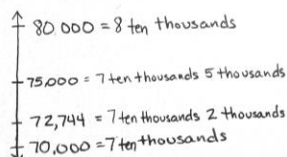 80,000 = 8 ten thousands
75,000 = 7 ten thousands 5 thousands
72,744 = 7 ten thousands 2 thousands
70,000 = 7 ten thousands